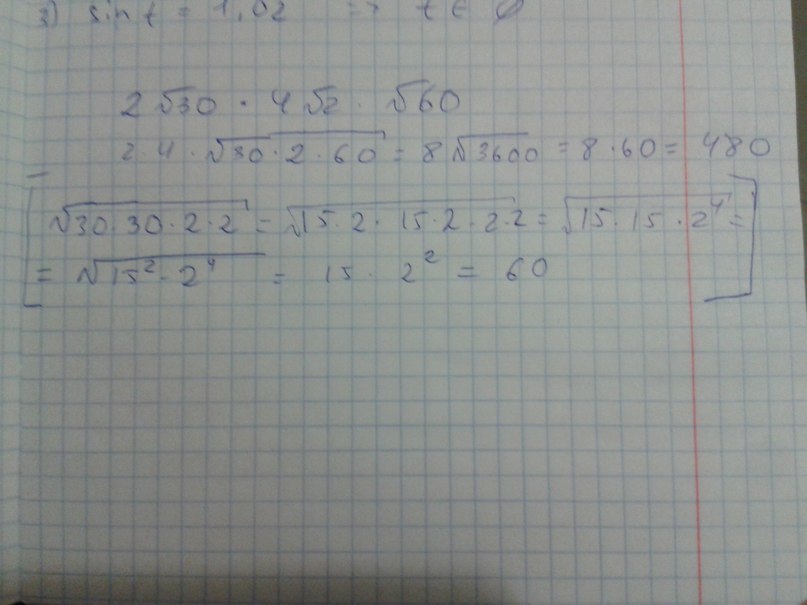 3) sin t = 1,02 => t ∈ ∅
2√30 · 4√2 · √60
2·4·√30·2·60 = 8√3600 = 8·60 = 480
[√30·30·2·2 = √15·2·15·2·2·2 = √15·15·2⁴ =
= √15²·2⁴ = 15·2² = 60]